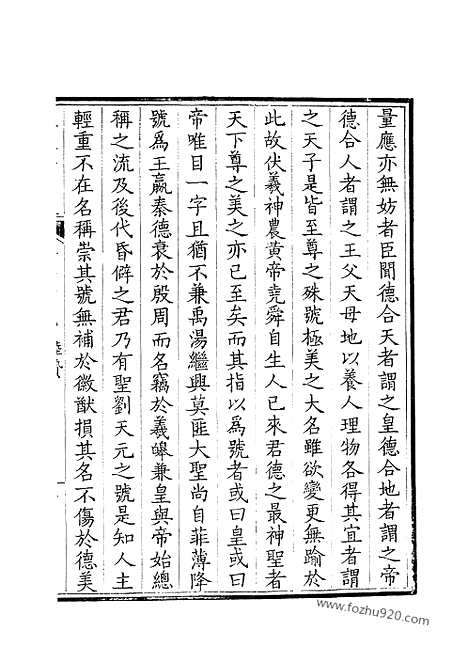 量應亦無妨者臣聞德合天者謂之皇德合地者謂之帝
德合人者謂之王父天母地以養人理物各得其宜者謂
之天子是皆至尊之殊號極美之大名雖欲變更無踰於
此故伏羲神農黃帝堯舜自生人已來君德之最神聖者
天下尊之美之亦已至矣而其指以爲號者或曰皇或曰
帝唯目一字且猶不兼禹湯繼興莫匪大聖尚自菲薄降
號爲王嬴秦德衰於殷周而名竊於羲皞兼皇與帝始總
稱之流及後代昏僻之君乃有聖劉天元之號是知人主
輕重不在名稱崇其號無補於徽猷損其名不傷於德美
www.fozhu920.com